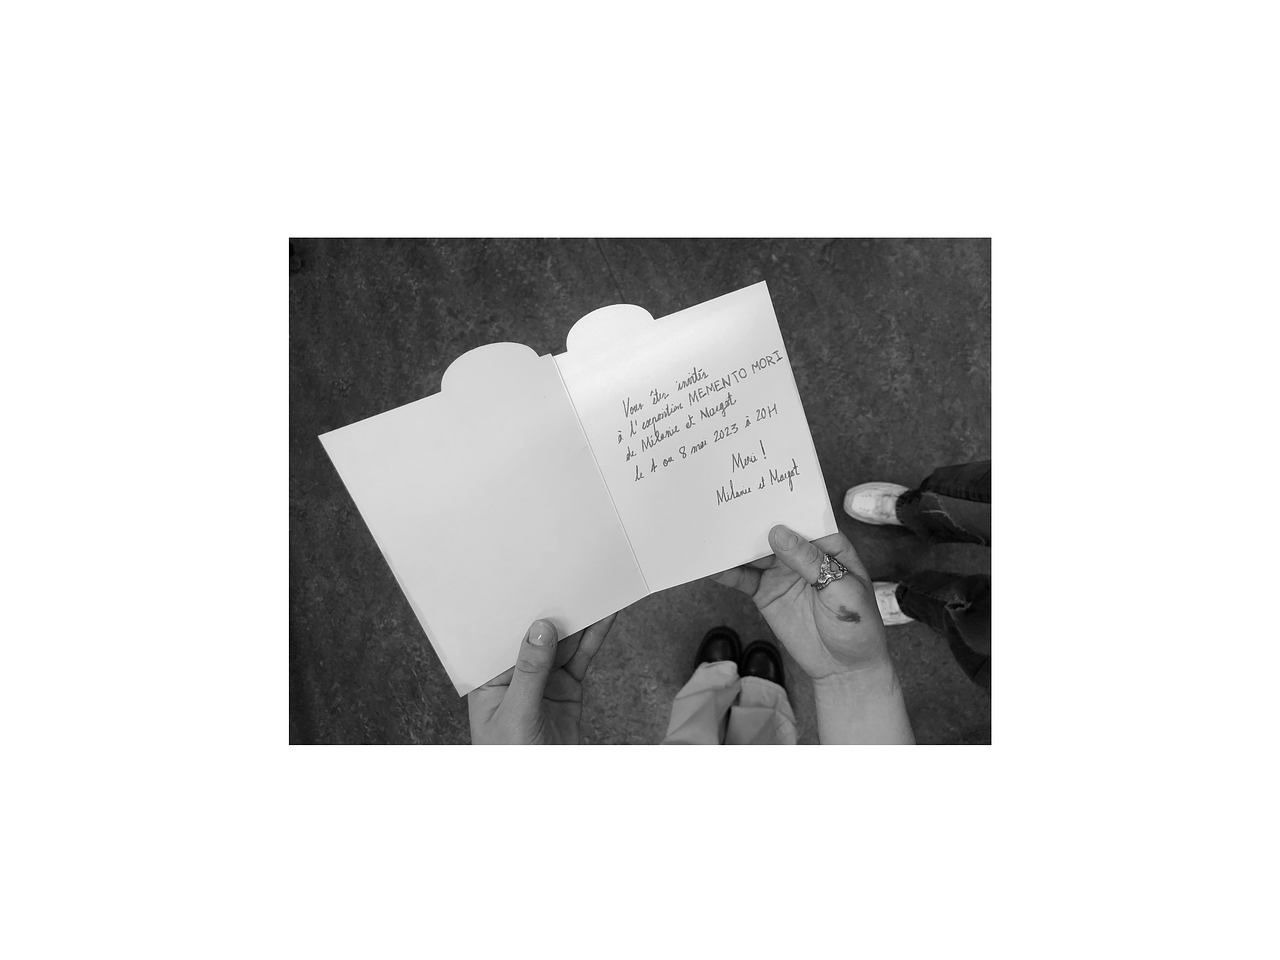 Vous êtes invités
à l'exposition MEMENTO MORI
de Mélanie et Margot
le 1 au 8 mai 2023 à 20H
Merci !
Mélanie et Margot